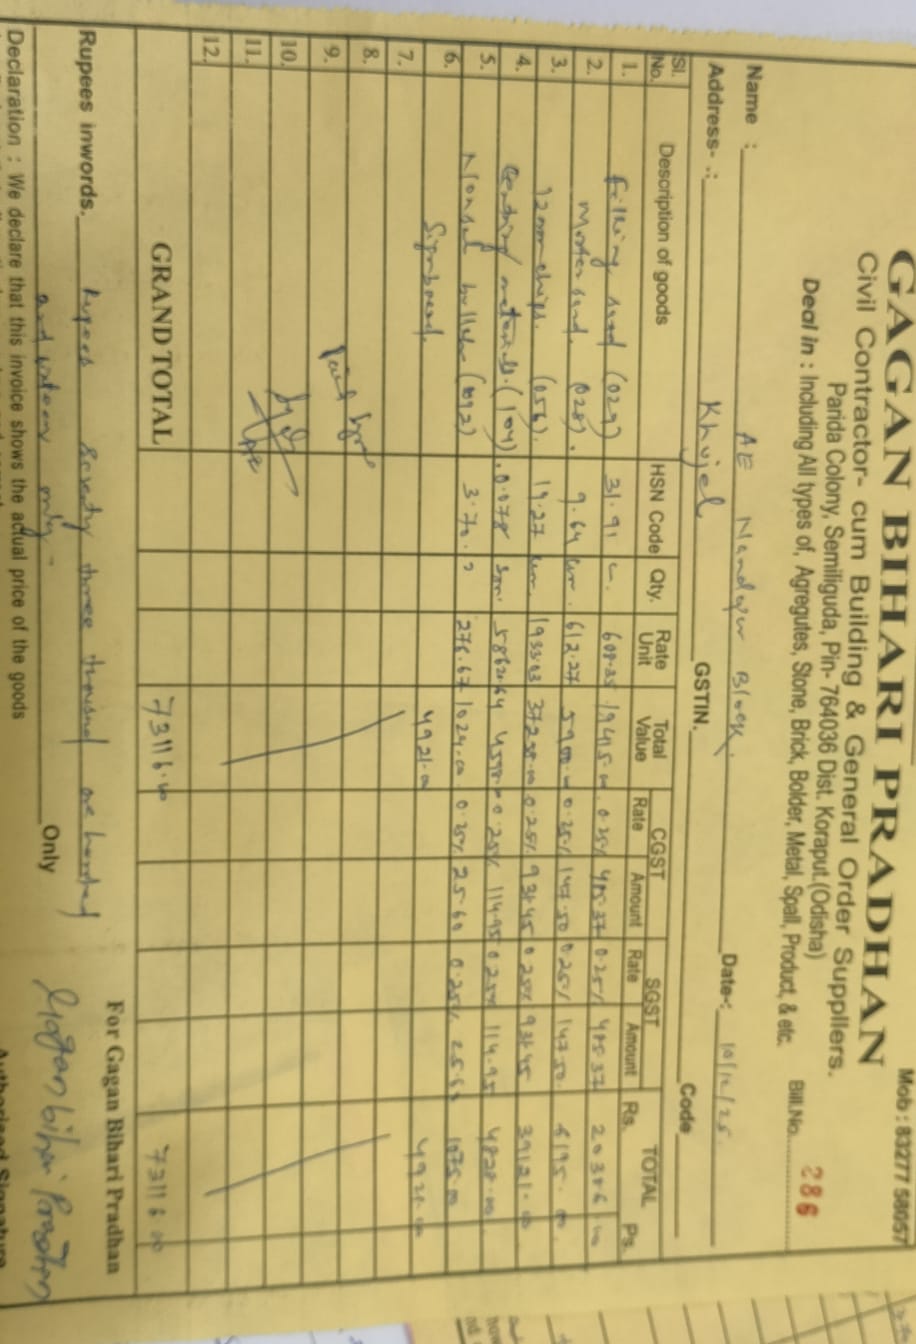 Mob : 83277 58057
GAGAN BIHARI PRADHAN
Civil Contractor- cum Building & General Order Suppliers.
Parida Colony, Semiliguda, Pin- 764036 Dist. Koraput.(Odisha)
Deal in : Including All types of, Agregutes, Stone, Brick, Bolder, Metal, Spall, Product, & etc.
Bill.No. 286
Name : AE Nandapur Block. Date-: 10/12/25
Address- .: Khujel GSTIN. Code
Sl. No. Description of goods HSN Code Qty. Rate Unit Total Value CGST Rate Amount SGST Rate Amount TOTAL Rs. Ps.
1. Filling sand (029) 31.91 608.35 19415.00 0.25% 485.37 0.25% 485.37 20386
2. Morter sand. (028). 9.64 cum. 612.27 5900.00 0.25% 147.50 0.25% 147.50 6195.00
3. 12mm chips. (056). 19.27 cum. 1933.03 37258.00 0.25% 931.45 0.25% 931.45 39121.00
4. Centring materials. (104). 0.078 5862.64 0.25% 114.95 0.25% 114.95 4828.00
5. (092) 3.70 276.67 1024.00 0.25% 25.60 0.25% 25.60 1075.00
6. Signboard. 4921.00
7.
8.
9.
10.
11.
12.
GRAND TOTAL 73116.00 73116.00
Rupees inwords. Rupees Seventy three thousand one hundred
and sixteen only. Only
For Gagan Bihari Pradhan
Gagan bihari Pradhan
Declaration : We declare that this invoice shows the actual price of the goods